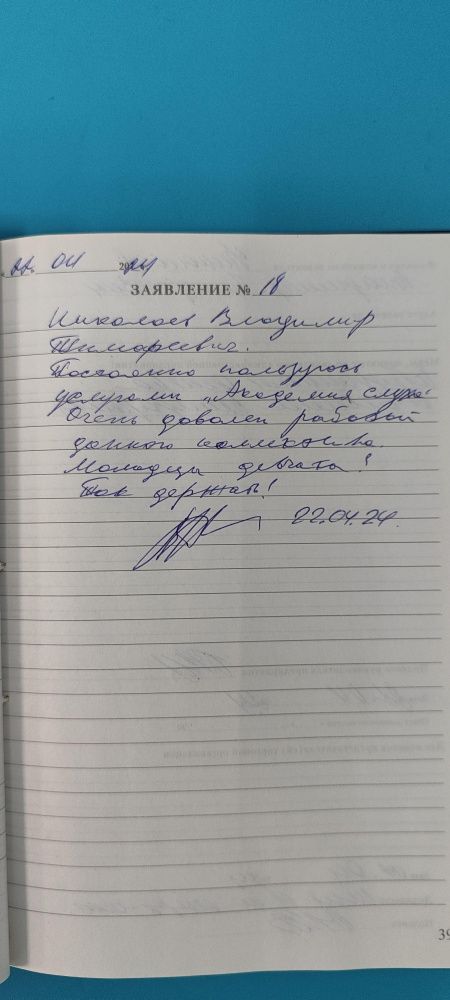 22. 04 2024
ЗАЯВЛЕНИЕ № 18
Николаев Владимир
Тимофеевич.
Постоянно пользуюсь
услугами „Академия слуха"
Очень доволен работой
данного коллектива.
Молодцы девчата!
Так держать!
22.04.24.
39